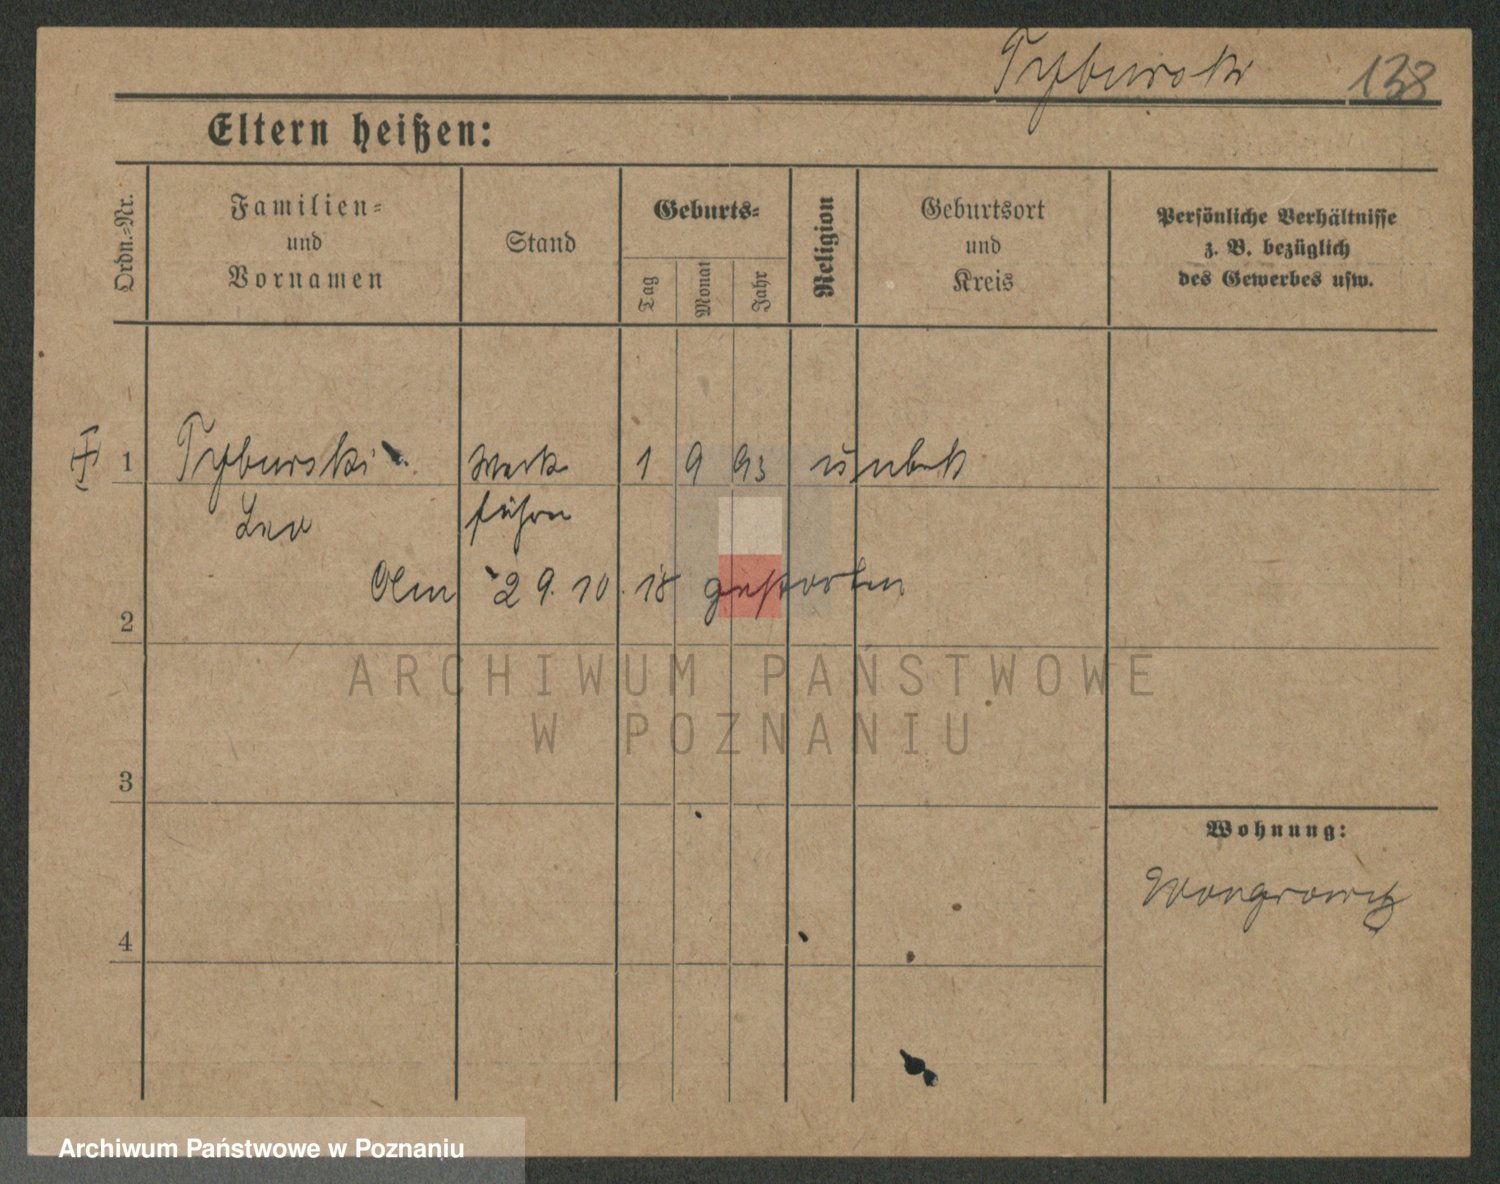 Tyburski 138
Eltern heißen:
Ordn.-Nr.
Familien-
und
Vornamen
Stand
Geburts-
Tag
Monat
Jahr
Religion
Geburtsort
und
Kreis
Persönliche Verhältnisse
z. B. bezüglich
des Gewerbes usw.
1 Tyburski Werk 1 9 93 unbek
Leo führer
Am 29. 10. 18 gestorben
2
ARCHIWUM PAŃSTWOWE
W POZNANIU
3
Wohnung:
Wongrowitz
4
Archiwum Państwowe w Poznaniu